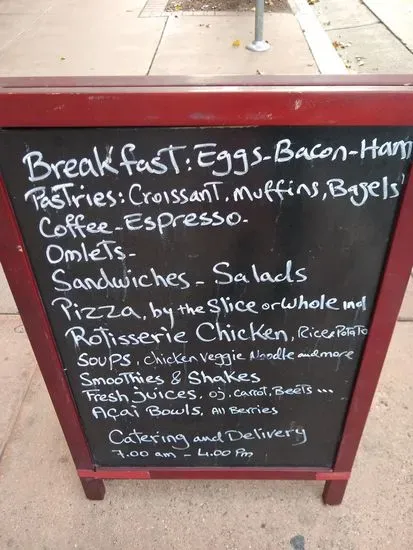 Breakfast: Eggs-Bacon-Ham
Pastries: Croissant, Muffins, Bagels
Coffee-Espresso-
Omlets-
Sandwiches - Salads
Pizza, by the Slice or whole ind
Rotisserie Chicken, Rice & Potato
Soups, chicken veggie Noodle and more
Smoothies & Shakes
Fresh juices, oj, carrot, Beets ...
Açai Bowls, All Berries
Catering and Delivery
7.00 am - 4.00 Pm